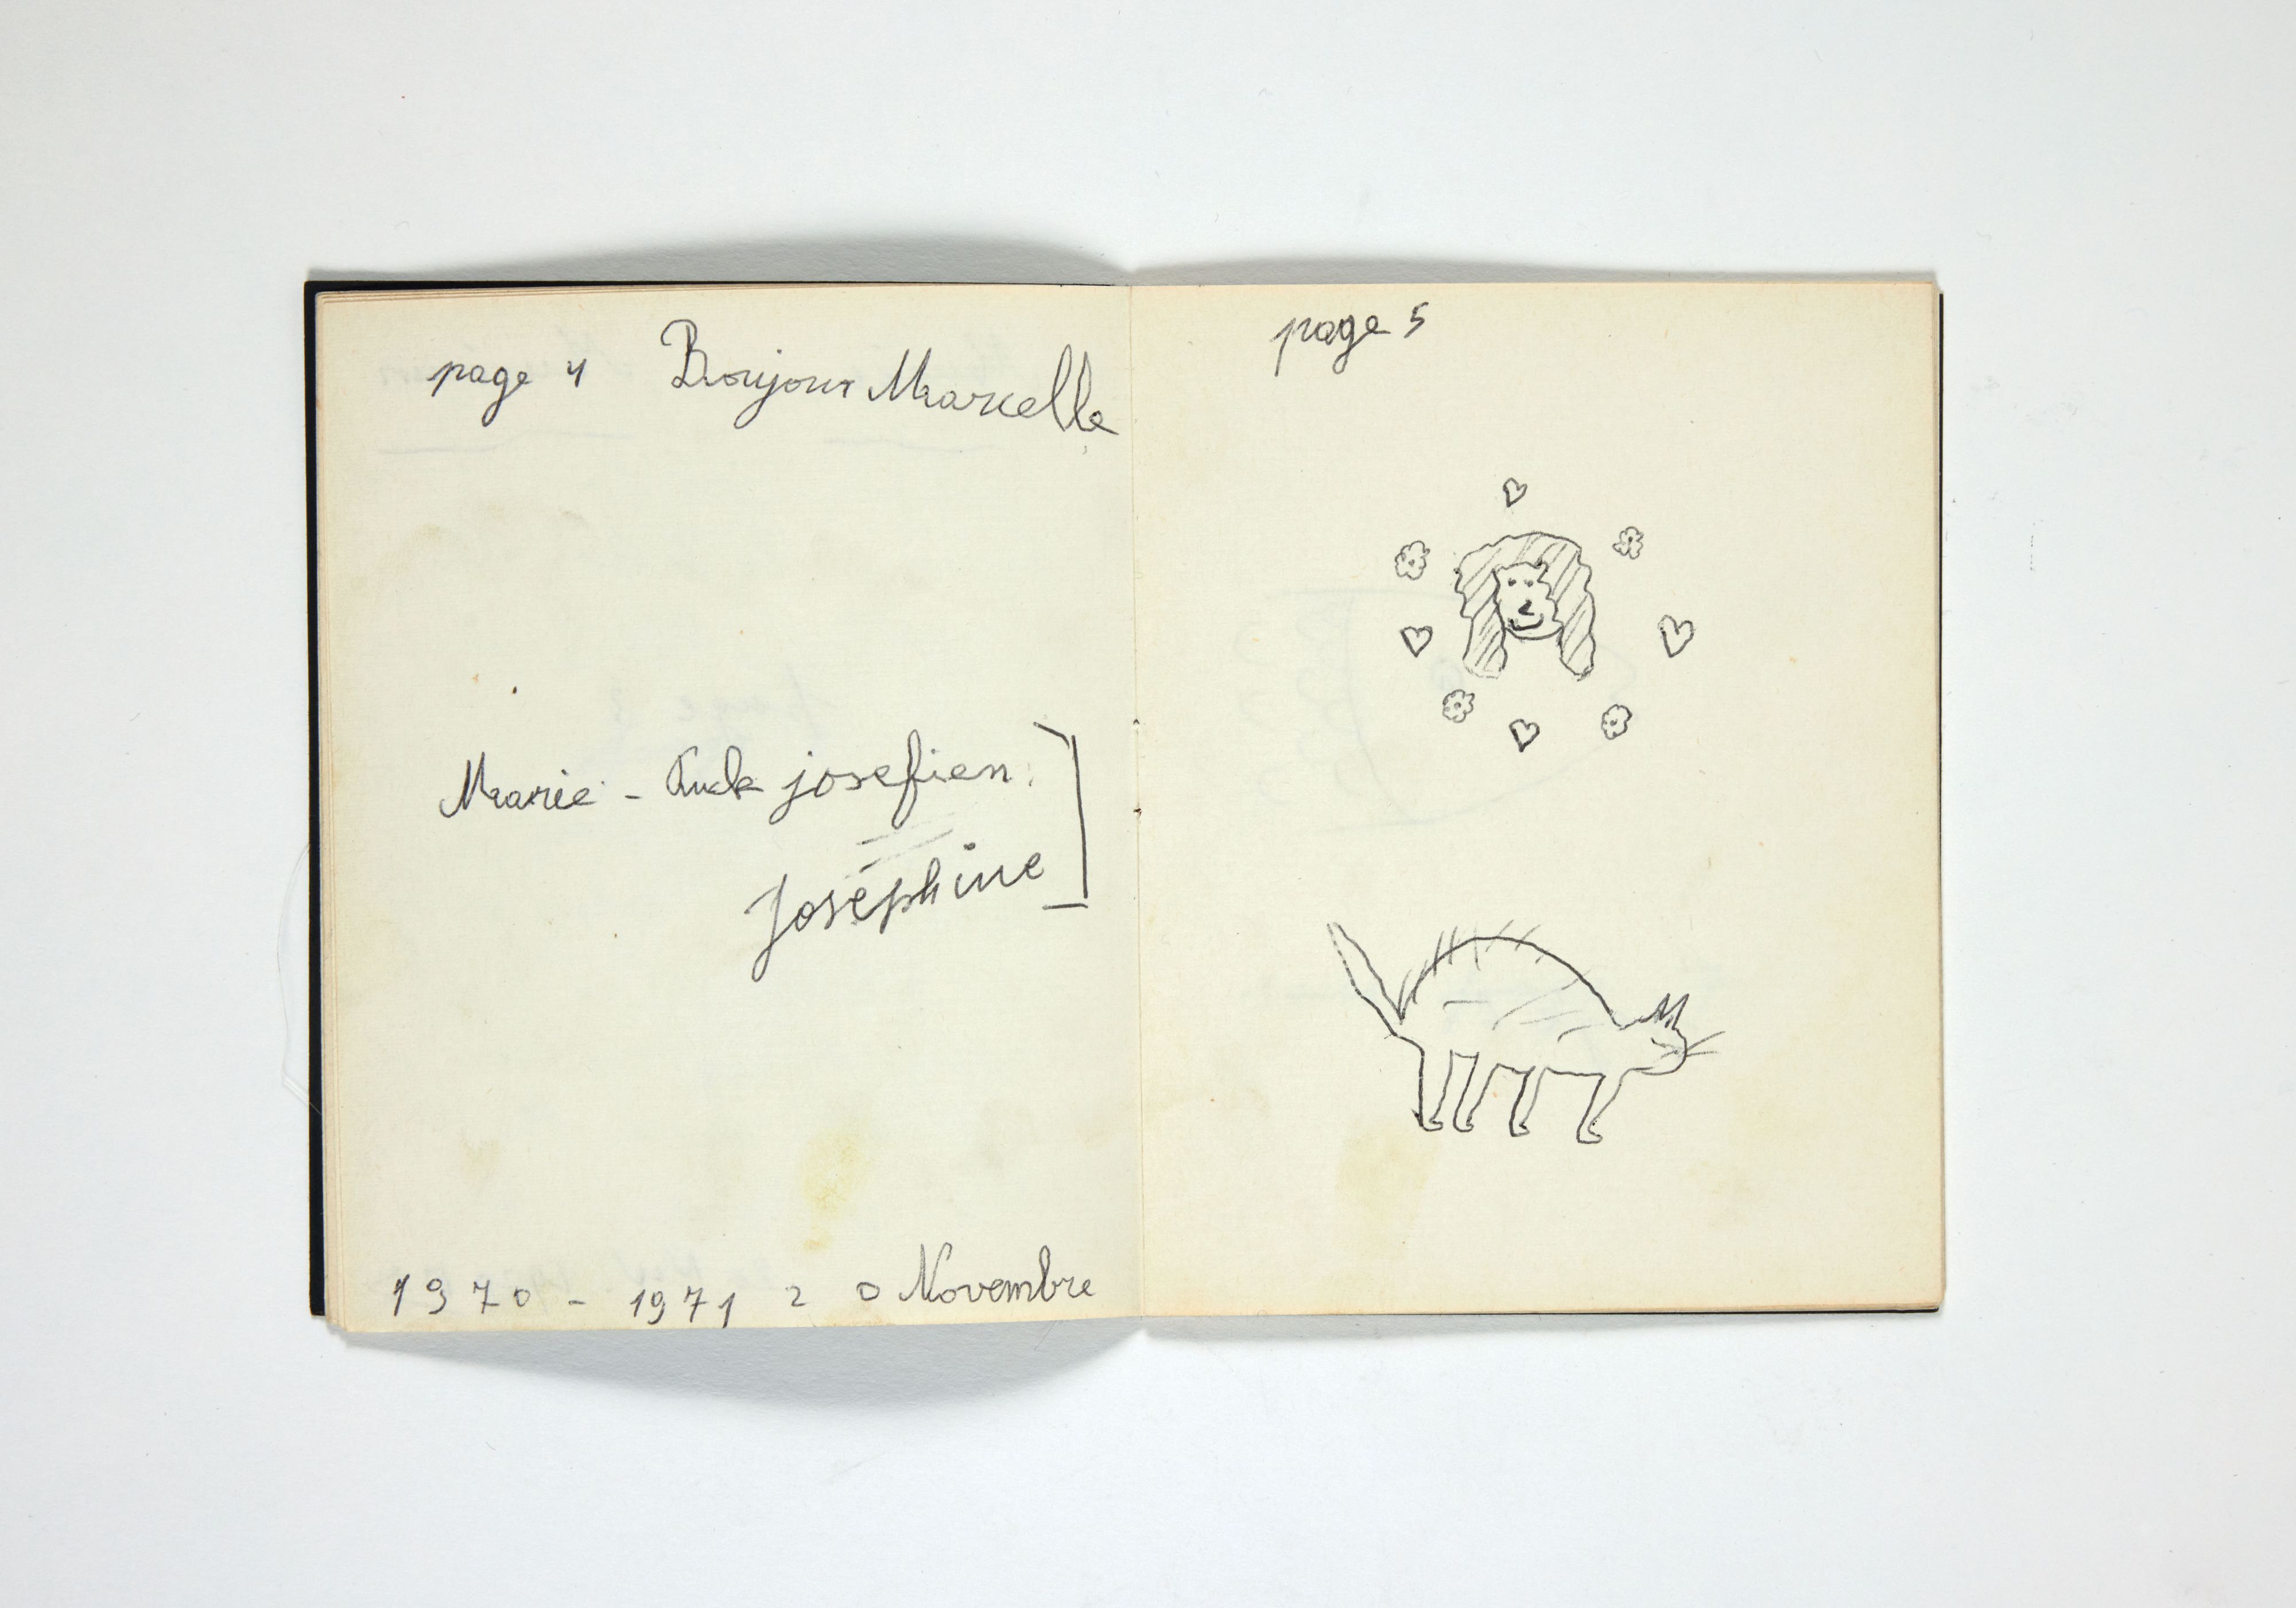 page 4 Bonjour Marcelle
Marie - Aude josefien
Joséphine
1970 - 1971 20 Novembre
page 5